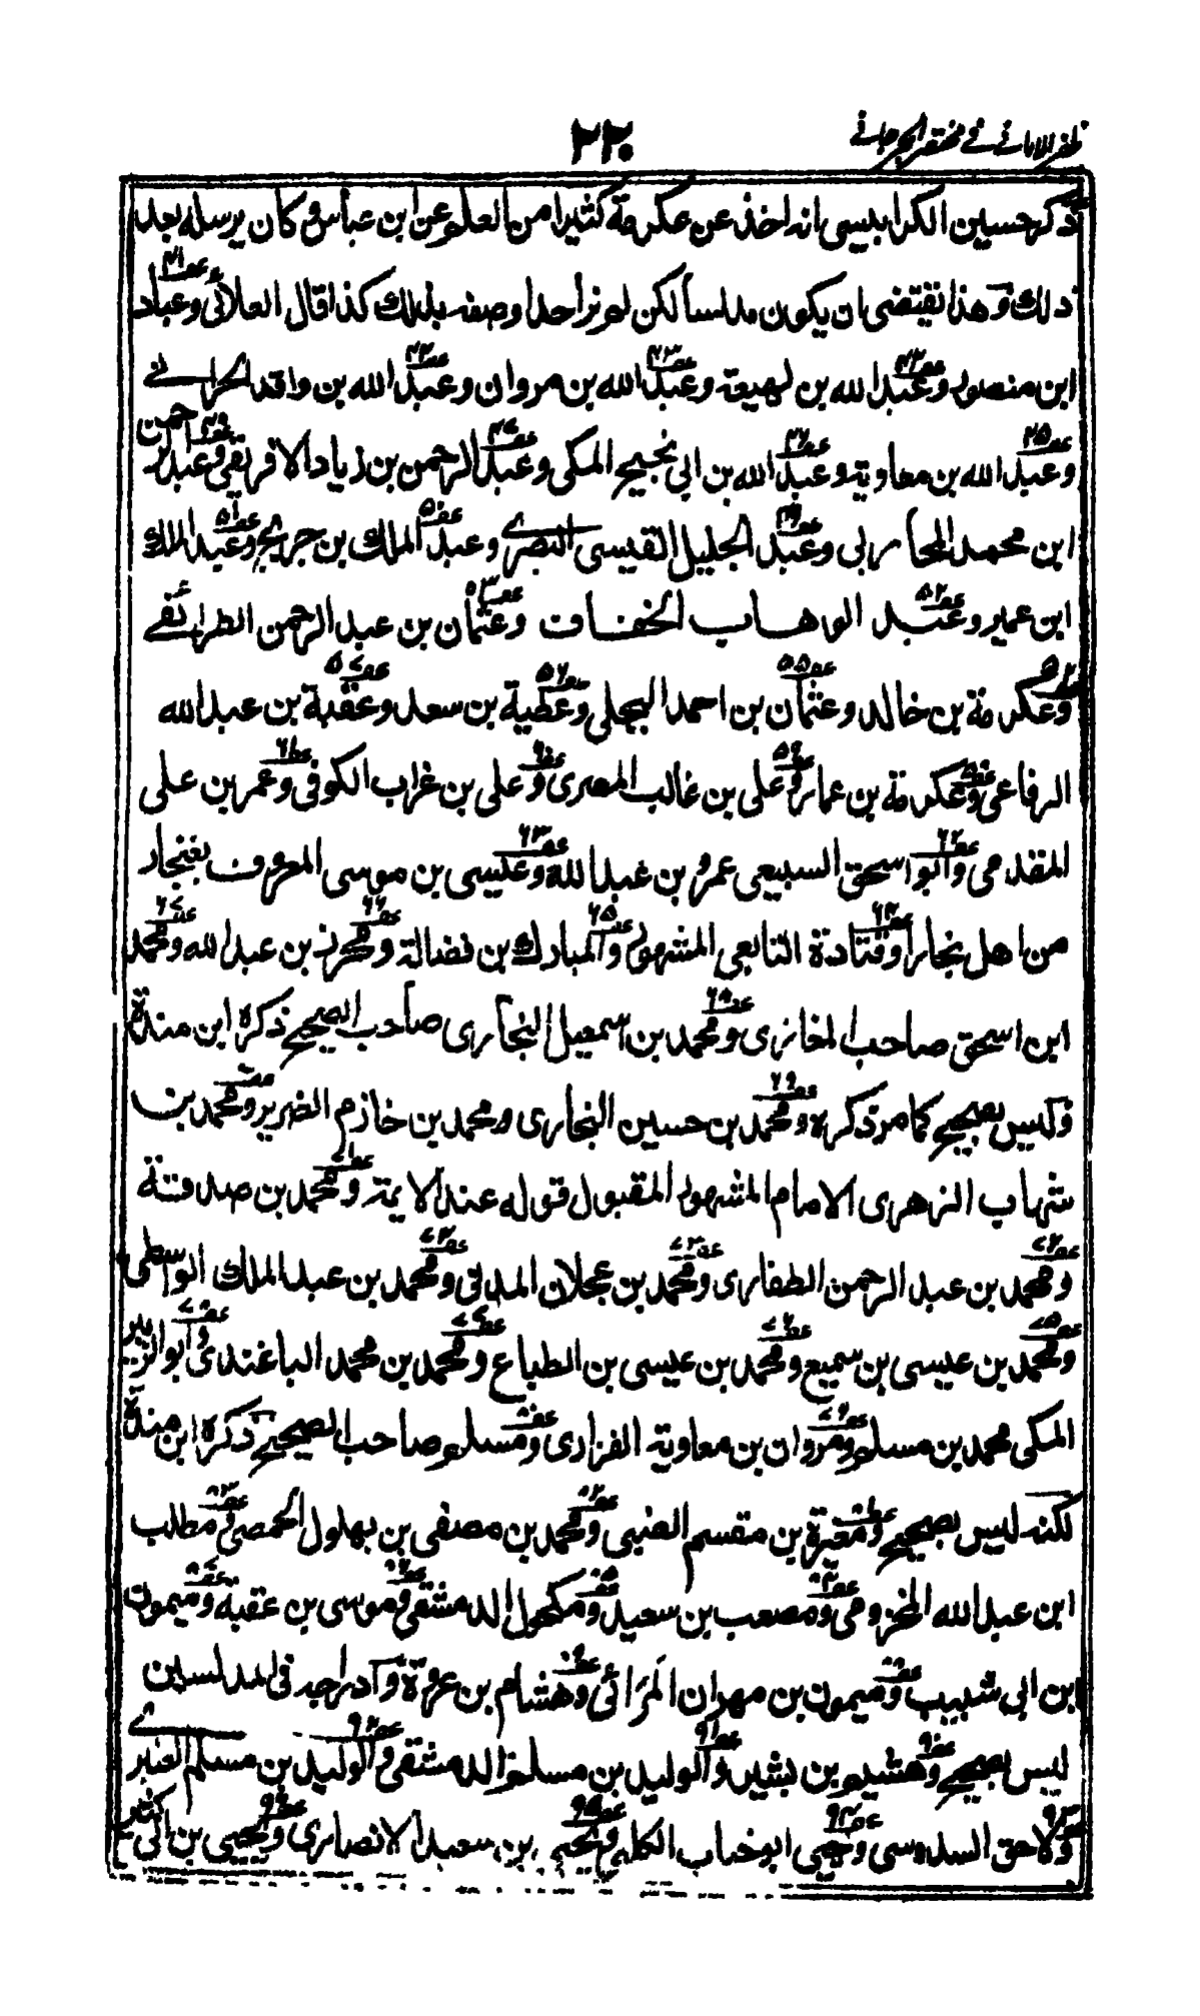 ظفر الاماني في مختصر الجرجاني
٢٢٠
ذكر حسين الكرابيسي انه اخذ عن عكرمة كثيرا من العلم عن ابن عباس وكان يرسله بعد
ذلك وهذا يقتضي ان يكون مدلسا لكن لم نر احدا وصفه بذلك كذا قال العلائي وعباد ٤١
ابن منصور وعبد الله بن لهيعة ٤٢ وعبد الله بن مروان ٤٣ وعبد الله بن واقد الحراني ٤٤
وعبد الله بن معاوية ٤٥ وعبد الله بن ابي نجيح المكي ٤٦ وعبد الرحمن بن زياد الافريقي ٤٧ وعبد الرحمن ٤٨
ابن محمد المحاربي وعبد الجليل القيسي البصري ٤٩ وعبد الملك بن جريج ٥٠ وعبد الملك ٥١
ابن عمير وعبد الوهاب الخفاف ٥٢ وعثمان بن عبد الرحمن الطرائقي ٥٣
وعكرمة بن خالد ٥٤ وعثمان بن احمد البجلي ٥٥ وعطية بن سعد ٥٦ وعقبة بن عبد الله ٥٧
الرفاعي وعكرمة بن عمار ٥٨ وعلي بن غالب المصري ٥٩ وعلي بن غراب الكوفي ٦٠ وعمر بن علي ٦١
المقدمي وابو اسحق السبيعي عمرو بن عبد الله ٦٢ وعيسى بن موسى المعروف بغنجار ٦٣
من اهل بخارا وقتادة التابعي المشهور ٦٤ والمبارك بن فضالة ٦٥ ومحرز بن عبد الله ٦٦ ومحمد ٦٧
ابن اسحق صاحب المغازي ومحمد بن اسمعيل البخاري صاحب الصحيح ذكره ابن مندة ٦٨
وليس بصحيح كما مر ذكره ومحمد بن حسين البخاري ٦٩ ومحمد بن خازم الضرير ومحمد بن ٧٠
شهاب الزهري الامام المشهور المقبول قوله عند الايمة ومحمد بن صدقة ٧١
ومحمد بن عبد الرحمن الطفاري ٧٢ ومحمد بن عجلان المدني ٧٣ ومحمد بن عبد الملك الواسطي ٧٤
ومحمد بن عيسى بن سميع ٧٥ ومحمد بن عيسى بن الطباع ٧٦ ومحمد بن محمد الباغندي ٧٧ وابو الزبير ٧٨
المكي محمد بن مسلم ومروان بن معاوية الفزاري ٧٩ ومسلم صاحب الصحيح ذكره ابن مندة ٨٠
لكنه ليس بصحيح ومغيرة بن مقسم الضبي ٨١ ومحمد بن مصفى بن بهلول الحمصي ٨٢ ومطلب ٨٣
ابن عبد الله المخزومي ومصعب بن سعيد ٨٤ ومكحول الدمشقي ٨٥ وموسى بن عقبة ٨٦ وميمون ٨٧
ابن ابي شبيب وميمون بن مهران المرائي ٨٨ وهشام بن عروة ٨٩ وادراجه في المدلسين
ليس بصحيح وهشيم بن بشير ٩٠ والوليد بن مسلم الدمشقي ٩١ والوليد بن مسلم العنبري ٩٢
ولاحق السدوسي ٩٣ ويحيى ابو خباب الكلبي ٩٤ ويحيى بن سعيد الانصاري ٩٥ ويحيى بن ابي كثير ٩٦